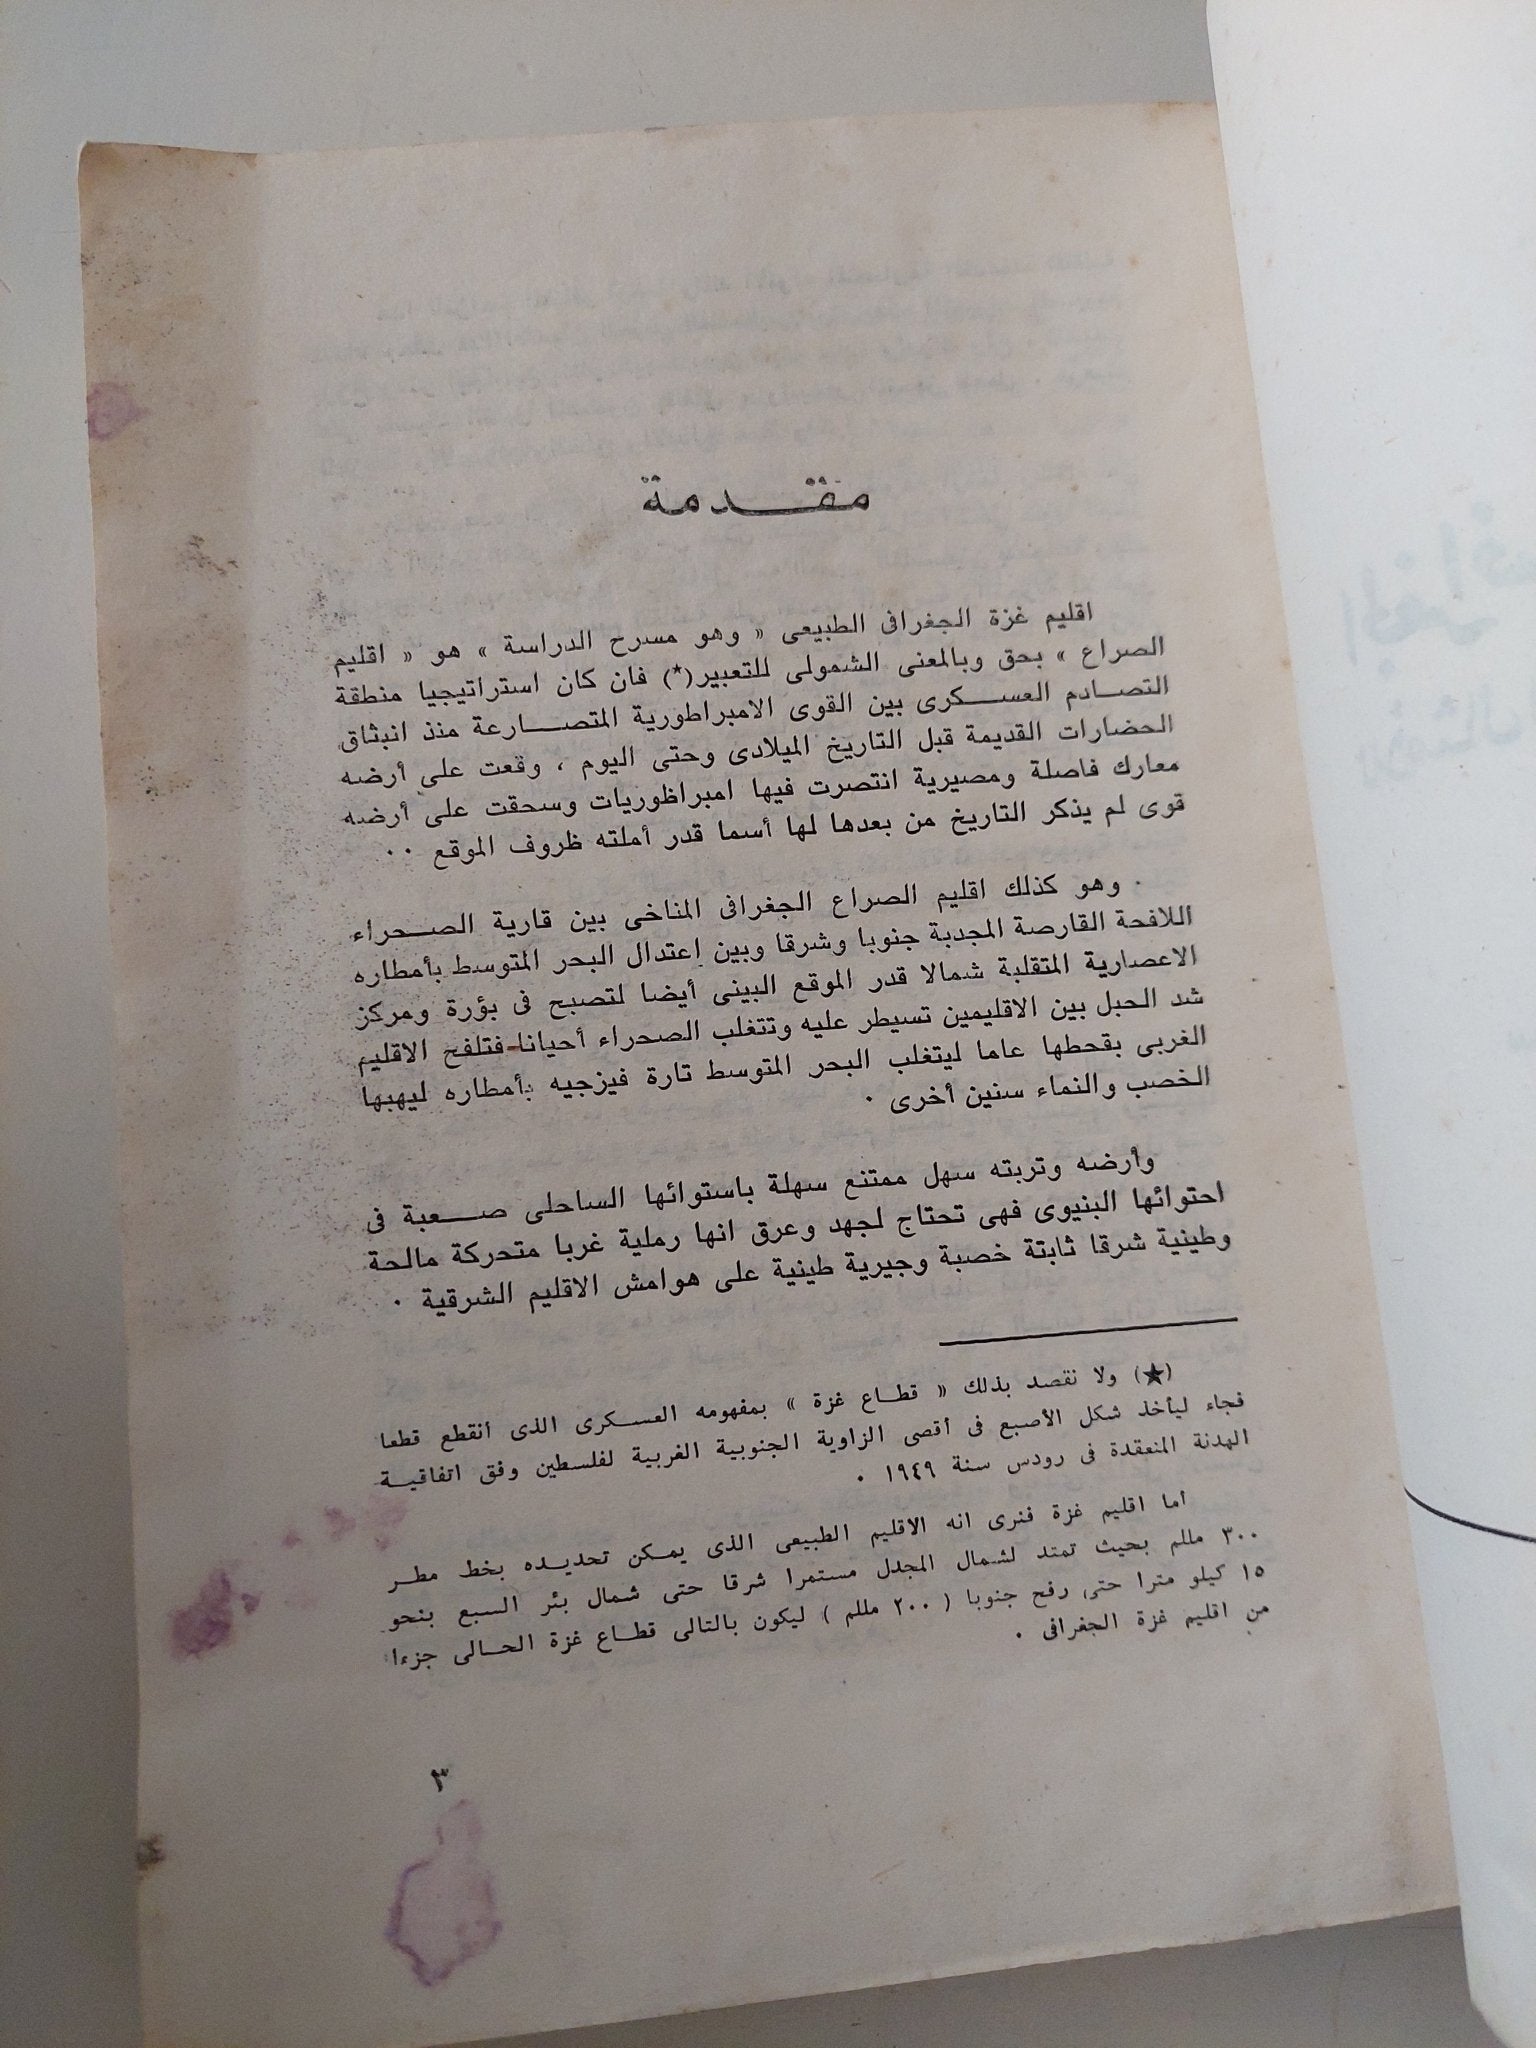 مقدمة
اقليم غزة الجغرافى الطبيعى « وهو مسرح الدراسة » هو « اقليم
الصراع » بحق وبالمعنى الشمولى للتعبير(*) فان كان استراتيجيا منطقة
التصادم العسكرى بين القوى الامبراطورية المتصارعة منذ انبثاق
الحضارات القديمة قبل التاريخ الميلادى وحتى اليوم ، وقعت على أرضه
معارك فاصلة ومصيرية انتصرت فيها امبراظوريات وسحقت على أرضه
قوى لم يذكر التاريخ من بعدها لها أسما قدر أملته ظروف الموقع ٠٠
وهو كذلك اقليم الصراع الجغرافى المناخى بين قارية الصحراء
اللافحة القارصة المجدبة جنوبا وشرقا وبين اعتدال البحر المتوسط بأمطاره
الاعصارية المتقلبة شمالا قدر الموقع البينى أيضا لتصبح فى بؤرة ومركز
شد الحبل بين الاقليمين تسيطر عليه وتتغلب الصحراء أحيانا فتلفح الاقليم
الغربى بقحطها عاما ليتغلب البحر المتوسط تارة فيزجيه بأمطاره ليهبها
الخصب والنماء سنين أخرى ٠
وأرضه وتربته سهل ممتنع سهلة باستوائها الساحلى صعبة فى
احتوائها البنيوى فهى تحتاج لجهد وعرق انها رملية غربا متحركة مالحة
وطينية شرقا ثابتة خصبة وجيرية طينية على هوامش الاقليم الشرقية ٠
(★) ولا نقصد بذلك « قطاع غزة » بمفهومه العسكرى الذى أنقطع قطعا
فجاء ليأخذ شكل الأصبع فى أقصى الزاوية الجنوبية الغربية لفلسطين وفق اتفاقية
الهدنة المنعقدة فى رودس سنة ١٩٤٩ ٠
أما اقليم غزة فنرى انه الاقليم الطبيعى الذى يمكن تحديده بخط مطر
٣٠٠ مللم بحيث تمتد لشمال المجدل مستمرا شرقا حتى شمال بئر السبع بنحو
١٥ كيلو مترا حتى رفح جنوبا ( ٢٠٠ مللم ) ليكون بالتالى قطاع غزة الحالى جزءا
من اقليم غزة الجغرافى ٠
٣